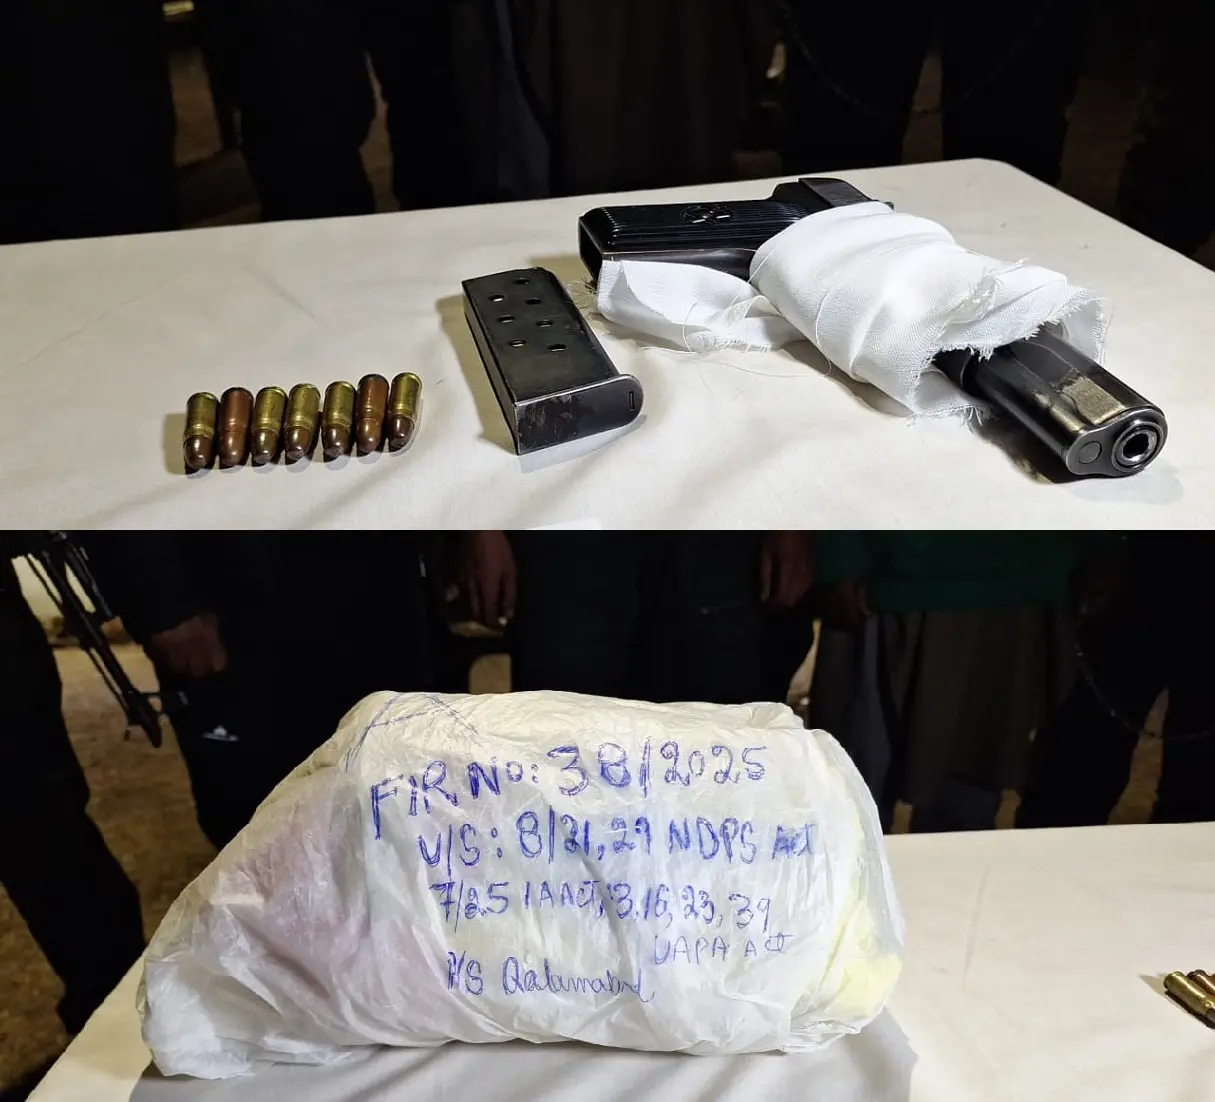 A
FIR No: 38/2025
U/S: 8/21, 29 NDPS Act
7/25 IA Act, 13, 16, 23, 39
UAPA Act
P/S Qalamabad